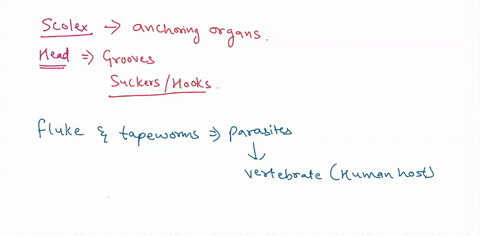 Scolex → anchoring organs.
Head ⇒ Grooves
Suckers/Hooks.
Fluke & tapeworms ⇒ parasites
↓
vertebrate (Human host)